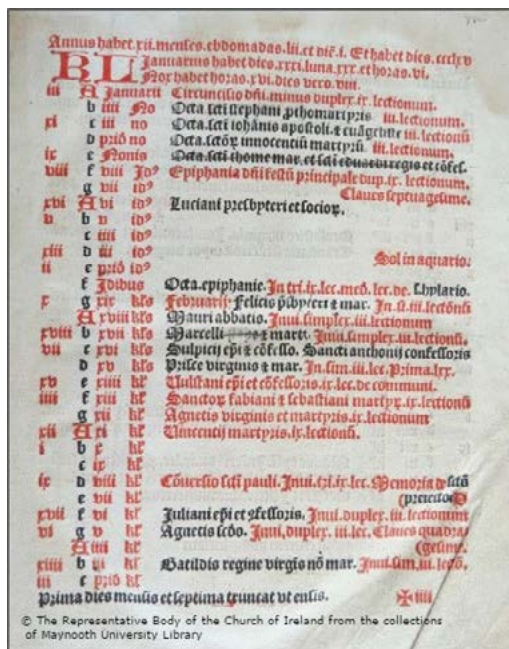 Annus habet.xii.menses.ebdomadas.lii.et diē.i. Et habet dies.ccclxv
KL Januarius habet dies.xxxi.luna.xxx.et horas.vi.
Nox habet horas.xvi.dies vero.viii.
iii A Januarii Circuncisio dñi.minus duplex.ix.lectionum.
b iiii No Octa.scti stephani pthomartyris iii.lectionum.
xi c iii no Octa.scti iohānis apostoli.et euāgeliste iii.lectionū
d priō no Octa.sctōꝝ innocentiū martyrū iii.lectionum.
ix e Nonis Octa.scti thome mar.et scti eduardi regis et cōfes.
viii f viii Idꝰ Epiphania dñi festū principale dup.ix.lectionum.
g vii idꝰ Claues septuagesime.
xvi A vi idꝰ Luciani presbyteri et socioꝝ.
v b v idꝰ
c iiii idꝰ
xiii d iii idꝰ Sol in aquario.
ii e priō idꝰ
f Idibus Octa.epiphanie.In tri.ix.lec.med.lec.de. s.hylario.
x g xix kls Februarii Felicis psbyteri et mar. In iii.lectiōnū
A xviii kls Mauri abbatis. Inui.simplex.iii.lectionum
xviii b xvii kls Marcelli et marti. Inui.simplex.iii.lectionū.
vii c xvi kls Sulpicij epi et cōfesso. Sancti anthonij confessoris
d xv kls Prisce virginis et mar. In.sim.iii.lec.Prima.lxx.
xv e xiiii kl Uulstani epi et cōfessoris.ix.lec.de communi.
iiii f xiii kl Sanctoꝝ fabiani et sebastiani martyꝝ.ix.lectionū
g xii kl Agnetis virginis et martyris.ix.lectionum
xii A xi kl Uincentij martyris.ix.lectionū.
i b x kl
c ix kl
ix d viii kl Cōuersio scti pauli. Inui.tri.ix.lec. Memoria de sctō
e vii kl (petro
xvii f vi kl Juliani epi et cōfessoris. Inui.duplex.iii.lectionum
vi g v kl Agnetis scdo. Inui.duplex.iii.lec. Claues quadra
A iiii kl (gesime.
xiiii b iii kl Batildis regine virgis nō mar. Inui.sim.iii.lectō.
iii c priō kl
Prima dies mensis et septima truncat vt ensis. ✠ iiii
© The Representative Body of the Church of Ireland from the collections
of Maynooth University Library